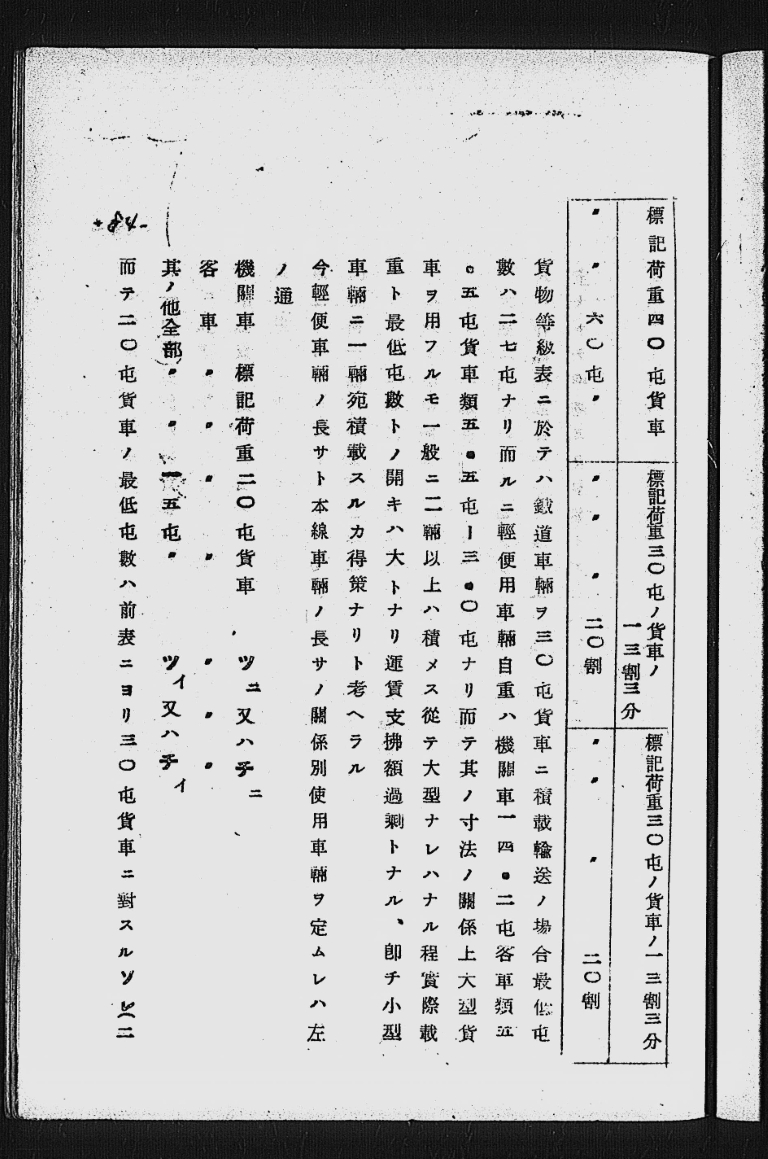 標記荷重四〇屯貨車 標記荷重三〇屯ノ貨車ノ一三割三分 標記荷重三〇屯ノ貨車ノ一三割三分
〃 〃 六〇屯〃 〃 〃 〃 二〇割 〃 〃 〃 二〇割
貨物等級表ニ於テハ鐵道車輛ヲ三〇屯貨車ニ積載輸送ノ場合最低屯
數ハ二七屯ナリ而ルニ輕便用車輛自重ハ機關車一四・二屯客車類五
・五屯貨車類五・五屯ー三・〇屯ナリ而テ其ノ寸法ノ關係上大型貨
車ヲ用フルモ一般ニ二輛以上ハ積メス從テ大型ナレハナル程實際載
重ト最低屯數トノ開キハ大トナリ運賃支拂額過剩トナル、卽チ小型
車輛ニ一輛宛積載スルカ得策ナリト考ヘラル
今輕便車輛ノ長サト本線車輛ノ長サノ關係別使用車輛ヲ定ムレハ左
ノ通
機關車 標記荷重二〇屯貨車 ツニ又ハチニ
客車 〃 〃 〃 〃 〃 〃 〃
其ノ他全部 〃 〃 一五屯〃 ツイ又ハチイ
而テ二〇屯貨車ノ最低屯數ハ前表ニヨリ三〇屯貨車ニ對スルソレ(二